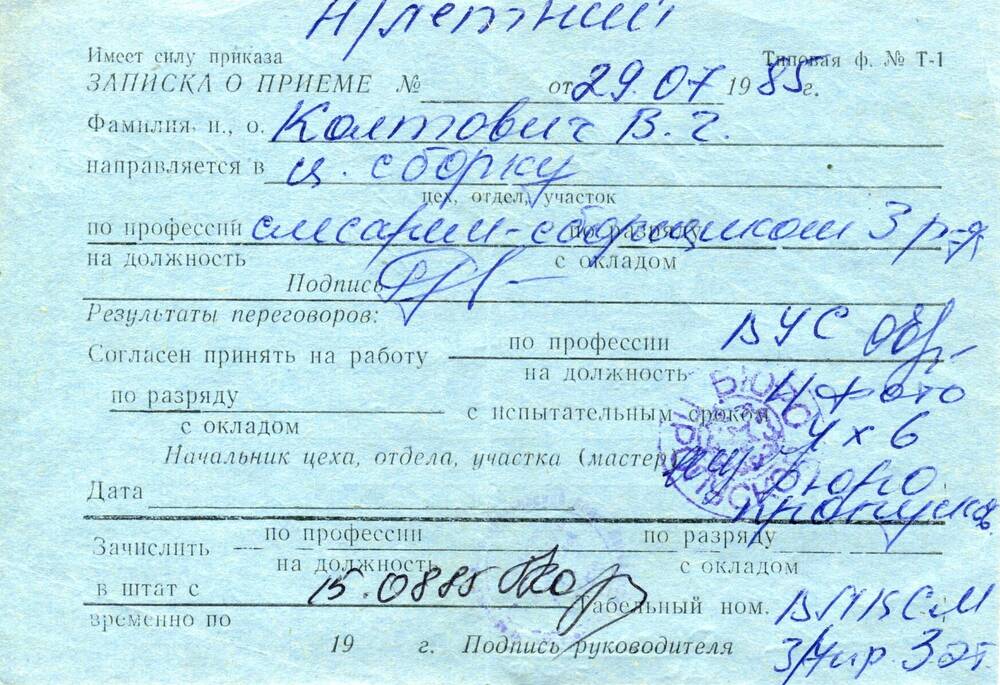 Имеет силу приказа Типовая ф. № Т-1
ЗАПИСКА О ПРИЕМЕ № от 29.07 1985г.
Фамилия, и., о. Колтович В. Г.
направляется в ц. сборку
цех, отдел, участок
по профессии слесарем-сборщиком по разряду 3 р-д
на должность с окладом
Подпись
Результаты переговоров: ВУС
Согласен принять на работу по профессии
на должность 4 фото
по разряду с испытательным сроком 4х6
с окладом
Начальник цеха, отдела, участка (мастер) бюро
Дата пропусков
Зачислить по профессии по разряду
на должность с окладом
в штат с 15.0885 Табельный ном. ВЛКСМ
временно по
19 г. Подпись руководителя 3 эт.